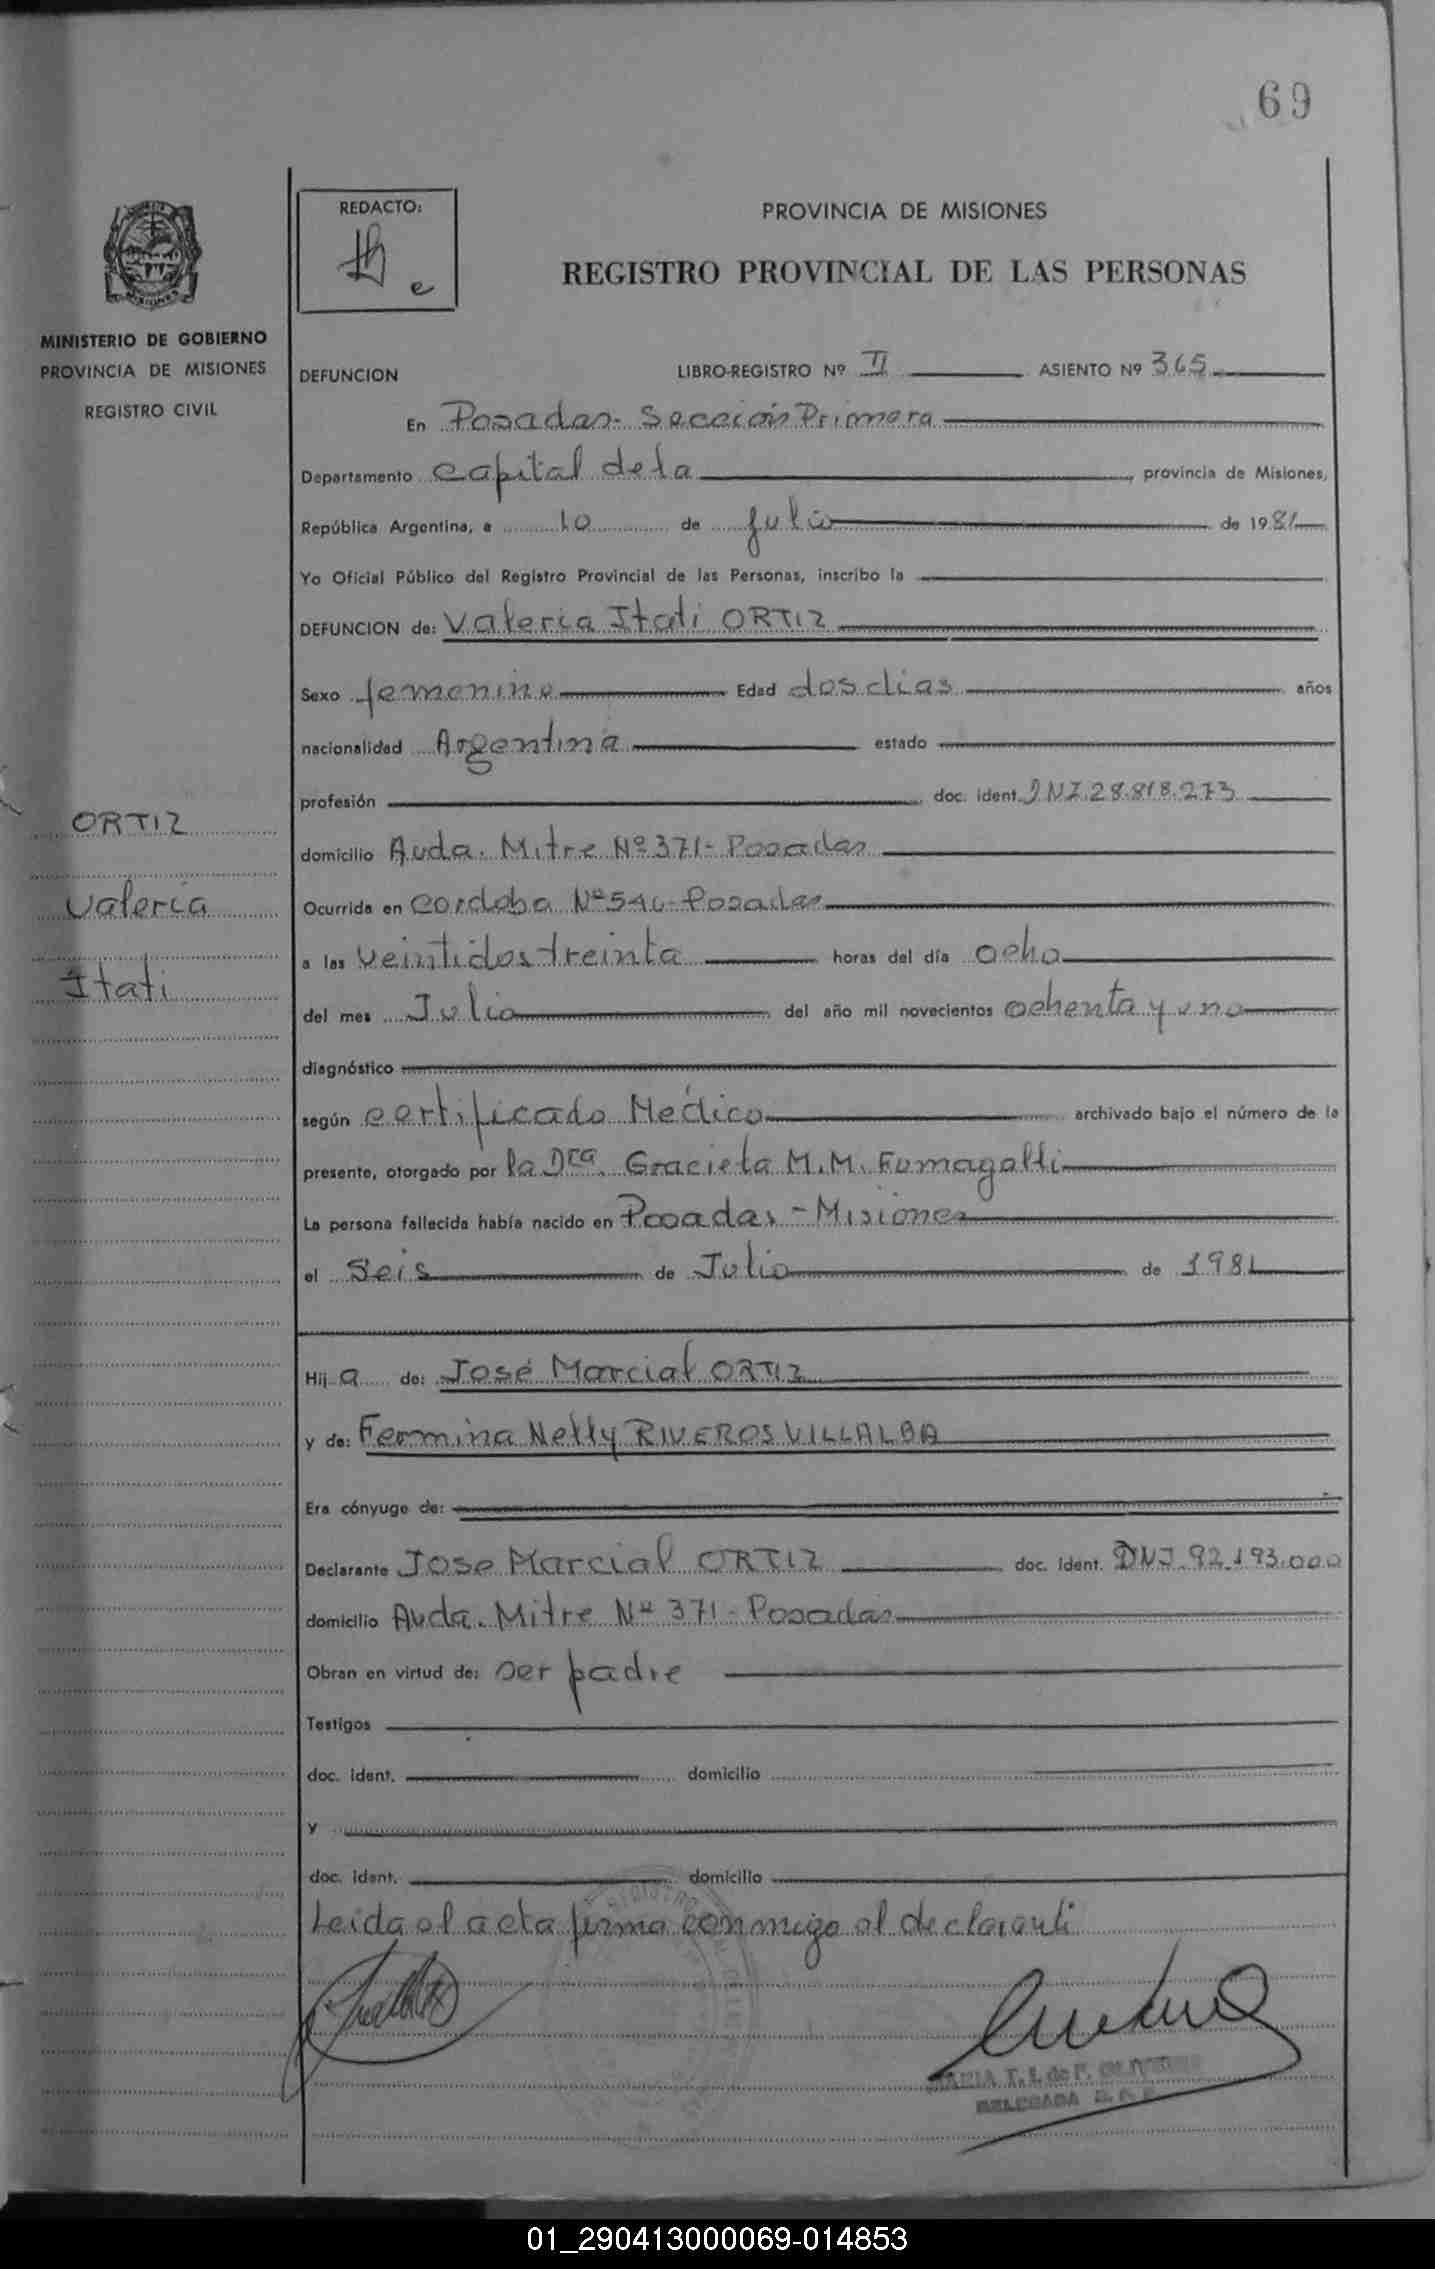 69
REDACTO:
PROVINCIA DE MISIONES
REGISTRO PROVINCIAL DE LAS PERSONAS
MINISTERIO DE GOBIERNO
PROVINCIA DE MISIONES
REGISTRO CIVIL
DEFUNCION LIBRO-REGISTRO Nº II ASIENTO Nº 365
En Posadas- Sección Primera
Departamento Capital de la provincia de Misiones,
República Argentina, a 10 de julio de 1981
Yo Oficial Público del Registro Provincial de las Personas, inscribo la
DEFUNCION de: Valeria Itati ORTIZ
Sexo femenino Edad dos dias años
nacionalidad Argentina estado
profesión doc. ident. DNI.28.818.273
ORTIZ
domicilio Avda. Mitre Nº 371- Posadas
Valeria
Ocurrida en Cordoba Nº - Posadas
a las veintidos treinta horas del día ocho
Itati
del mes Julio del año mil novecientos ochenta y uno
diagnóstico
según certificado Médico archivado bajo el número de la
presente, otorgado por la Dra. Graciela M.M. Fumagalli
La persona fallecida había nacido en Posadas - Misiones
el Seis de Julio de 1981
Hij a de: José Marcial ORTIZ
y de: Fermina Nelly RIVEROS VILLALBA
Era cónyuge de:
Declarante Jose Marcial ORTIZ doc. ident. DNI 92.193.000
domicilio Avda. Mitre Nº 371 - Posadas
Obran en virtud de: ser padre
Testigos
doc. ident. domicilio
y
doc. ident. domicilio
Leida el acta firma conmigo el declarante
MARIA T. I. de F.
DELEGADA
01_290413000069-014853